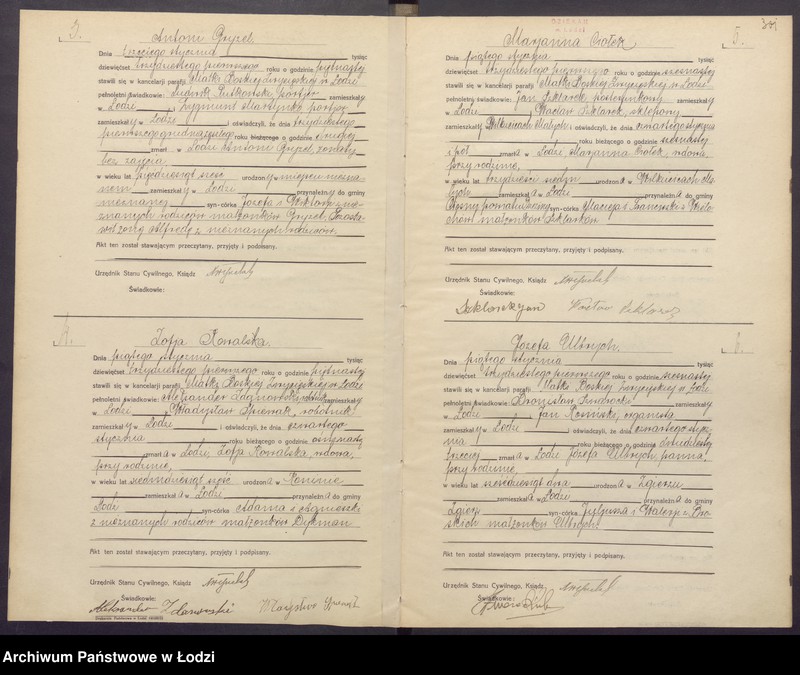 3.
Antoni Grypel
Dnia trzeciego stycznia tysiąc
dziewięćset trzydziestego pierwszego roku o godzinie piętnastej
stawili się w kancelarji parafji Matki Boskiej Zwycięskiej w Łodzi
pełnoletni świadkowie: Ludwik portjer zamieszkały
w Łodzi i Zygmunt Martynka portjer
zamieszkały w Łodzi i oświadczyli, że dnia trzydziestego
pierwszego grudnia roku bieżącego o godzinie
zmarł w Łodzi Antoni Grypel żonaty
bez zajęcia
w wieku lat pięćdziesiąt sześć urodzony w miejscu niezna-
nem zamieszkały w Łodzi przynależny do gminy
nieznanej syn-córka Józefa i Wiktorji nie-
znanych rodziców małżonków Grypel. Pozosta-
wił żonę Alfredę z nieznanych rodziców.
Akt ten został stawającym przeczytany, przyjęty i podpisany.
Urzędnik Stanu Cywilnego, Ksiądz
Świadkowie:
4.
Zofja Kowalska.
Dnia piątego stycznia tysiąc
dziewięćset trzydziestego pierwszego roku o godzinie piętnastej
stawili się w kancelarji parafji Matki Boskiej Zwycięskiej w Łodzi
pełnoletni świadkowie: Aleksander zamieszkały
w Łodzi i Władysław robotnik
zamieszkały w Łodzi i oświadczyli, że dnia czwartego
stycznia roku bieżącego o godzinie ósmej
zmarła w Łodzi Zofja Kowalska, wdowa,
przy rodzinie,
w wieku lat siedmdziesiąt sześć urodzona w Koninie
zamieszkała w Łodzi przynależna do gminy
Łodzi syn-córka Adama i Agnieszki
z nieznanych rodziców małżonków Dykman
Akt ten został stawającym przeczytany, przyjęty i podpisany.
Urzędnik Stanu Cywilnego, Ksiądz
Świadkowie:
5.
Marjanna Ciołek
Dnia piątego stycznia tysiąc
dziewięćset trzydziestego pierwszego roku o godzinie szesnastej
stawili się w kancelarji parafji Matki Boskiej Zwycięskiej w Łodzi
pełnoletni świadkowie: Jan Szklarek zamieszkały
w Łodzi i Wacław Szklarek, sklepowy
zamieszkały Wilkucicach Małych i oświadczyli, że dnia czwartego stycznia
roku bieżącego o godzinie
i pół zmarła w Łodzi Marjanna Ciołek, wdowa,
przy rodzinie,
w wieku lat trzydzieści jeden urodzona w Wilkucicach Ma-
łych zamieszkała w Łodzi przynależna do gminy
syn-córka Macieja i Franciszki z
małżonków Szklarków
Akt ten został stawającym przeczytany, przyjęty i podpisany.
Urzędnik Stanu Cywilnego, Ksiądz
Świadkowie:
Szklarek Jan Wacław Szklarek
6.
Józefa Ulbrych.
Dnia piątego stycznia tysiąc
dziewięćset trzydziestego pierwszego roku o godzinie szesnastej
stawili się w kancelarji parafji Matki Boskiej Zwycięskiej w Łodzi
pełnoletni świadkowie: Bronisław zamieszkały
w Łodzi i Jan organista
zamieszkały w Łodzi i oświadczyli, że dnia czwartego stycz-
nia roku bieżącego o godzinie dwudziestej
trzeciej zmarła w Łodzi Józefa Ulbrych, panna,
przy rodzinie,
w wieku lat sześćdziesiąt dwa urodzona w Zgierzu
zamieszkała w Łodzi przynależna do gminy
Zgierz syn-córka Juljusza i Walerji z
małżonków Ulbrych.
Akt ten został stawającym przeczytany, przyjęty i podpisany.
Urzędnik Stanu Cywilnego, Ksiądz
Świadkowie:
Archiwum Państwowe w Łodzi